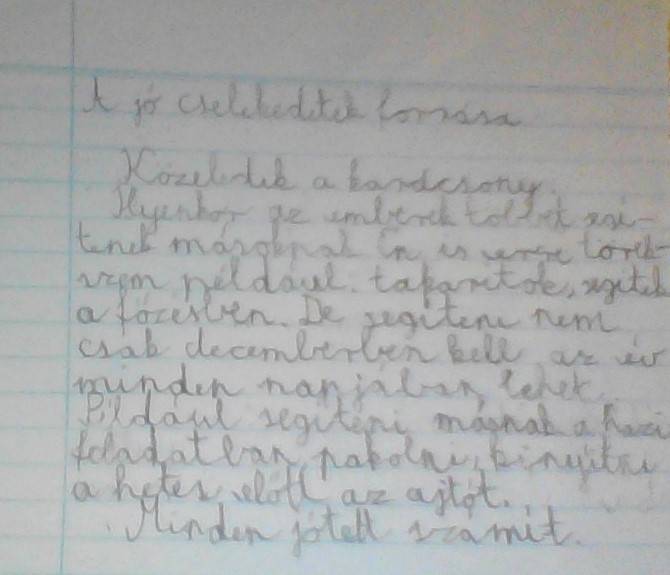 A jó cselekedetek forrása
Közeledik a karácsony.
Ilyenkor az emberek többet segí-
tenek másoknak én is erre törek-
szem például: takarítok, segítek
a főzésben. De segíteni nem
csak decemberben kell az év
minden napjában lehet.
Például segíteni másnak a házi
feladatban, pakolni, kinyitni
a hetes előtt az ajtót.
Minden jótett számít.